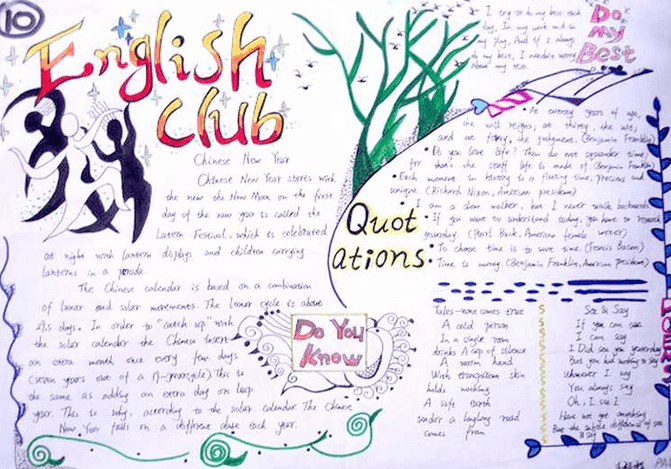 10
English
Club
Chinese New Year
Chinese New Year starts with
the new the New Moon on the first
day of the new year is called the
Lantern Festival, which is celebrated
at night with lantern displays and children carrying
lanterns in a parade.
The Chinese calendar is based on a combination
of lunar and solar movements. The lunar cycle is about
29.5 days. In order to "catch up" with
the solar calendar the Chinese insert
an extra month once every few days
(seven years out of a 19-yearcycle) This is
the same as adding an extra day on leap
year. This is why, according to the solar calendar. The Chinese
New Year falls on a different date each year.
Do You
Know
Quot
ations:
I try to do my best each
day. In my work and in
my play. And if I always
do my best, I needn't worry
about my test.
Do
My
Best
At twenty years of age,
the will reigns; at thirty, the wit;
and at forty, the judgment. (Benjamin Franklin)
Do you love life? Then do not squander time,
for that's the stuff life is made of. (Benjamin Franklin)
Each moment in history is a fleeting time, precious and
unique. (Richard Nixon, American president)
I am a slow walker, but I never walk backwards.
If you want to understand today, you have to research
yesterday. (Pearl Buck, American female writer)
To choose time is to save time. (Francis Bacon)
Time is money. (Benjamin Franklin, American president)
Tales-none comes true
A cold person
In a single room
drinks A cup of silence
A warm hand
With skin
holds nothing
A safe earth
under a laughing road
comes from
See & Say
If you can see
I can say
I Did see you yesterday
But you had nothing to say
Whenever I say
You always say
Oh, I see I
Have not got anything
But the subtle difference of see
& say